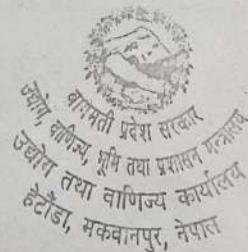 बागमती प्रदेश सरकार
उद्योग, वाणिज्य, भूमि तथा प्रशासन मन्त्रालय
उद्योग तथा वाणिज्य कार्यालय
हेटौंडा, मकवानपुर, नेपाल